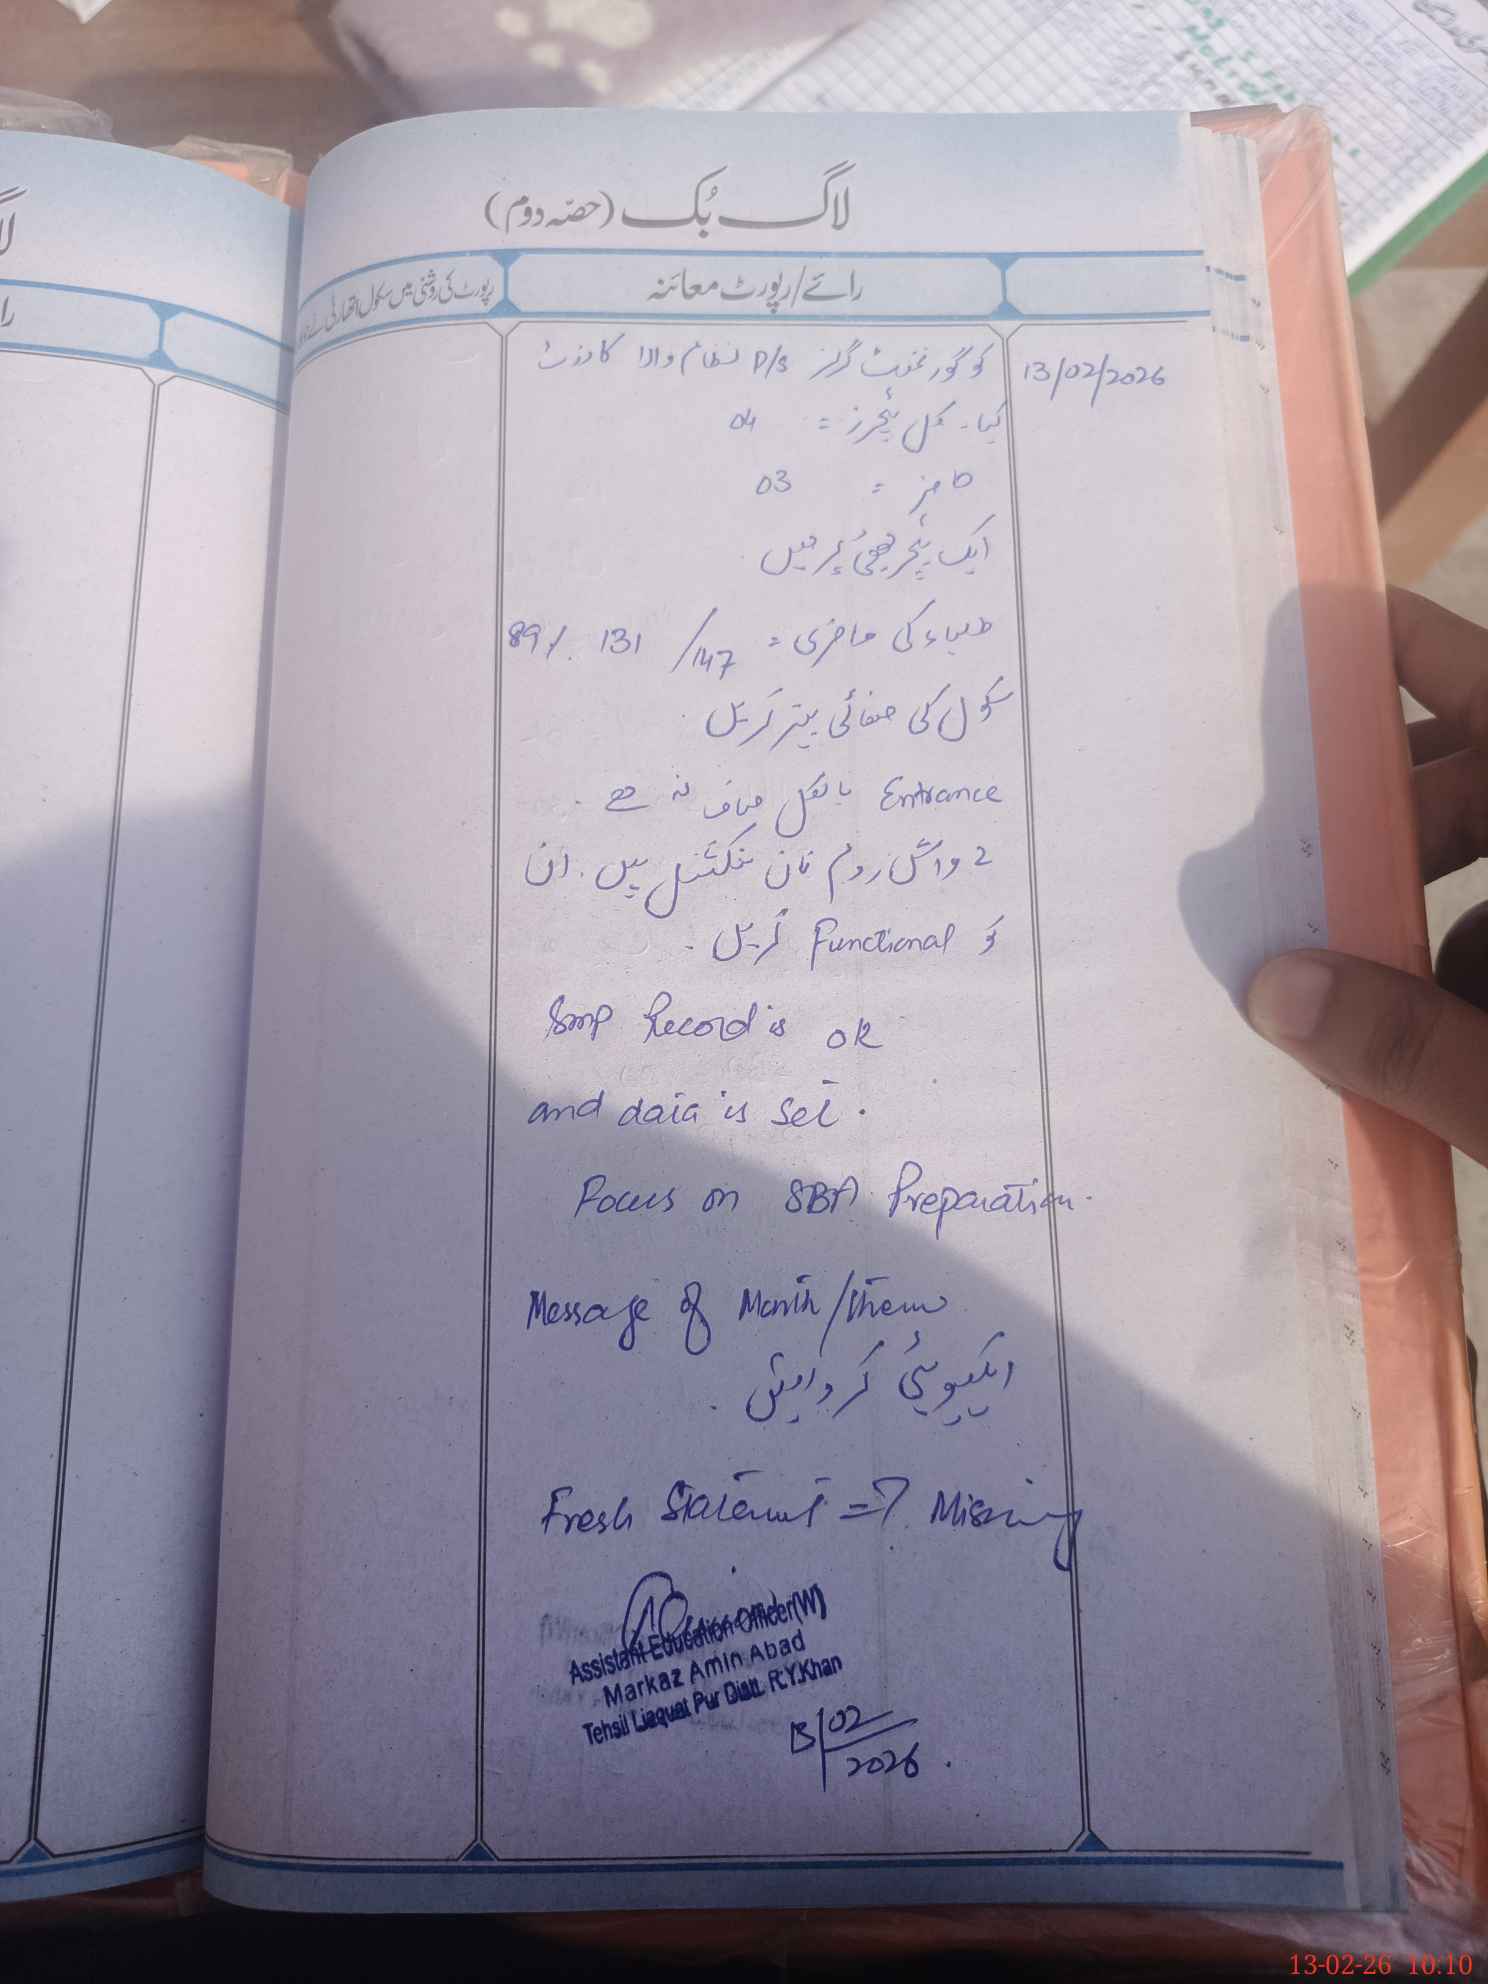 لاگ بُک (حصّہ دوم)
رائے/رپورٹ معائنہ
رپورٹ کی روشنی میں سکول اتھارٹی نے
13/02/2026
کو گورنمنٹ گرلز P/S نظام والا کا وزٹ
کیا۔ کل ٹیچرز = 04
حاضر = 03
ایک ٹیچر چھٹی پر ہیں۔
طلباء کی حاضری = 131/147 89%
سکول کی صفائی بہتر کریں۔
Entrance بالکل صاف نہ ہے۔
2 واش روم نان فنکشنل ہیں۔ ان
کو Functional کریں۔
Smp Record is ok
and data is set.
Focus on SBA Preparation.
Message of Month/
ایکٹیوٹی کروائیں۔
Fresh => Missing
Assistant Education Officer(W)
Markaz Amin Abad
Tehsil Liaquat Pur Distt. R.Y.Khan
13/02/2026.
13-02-26 10:10